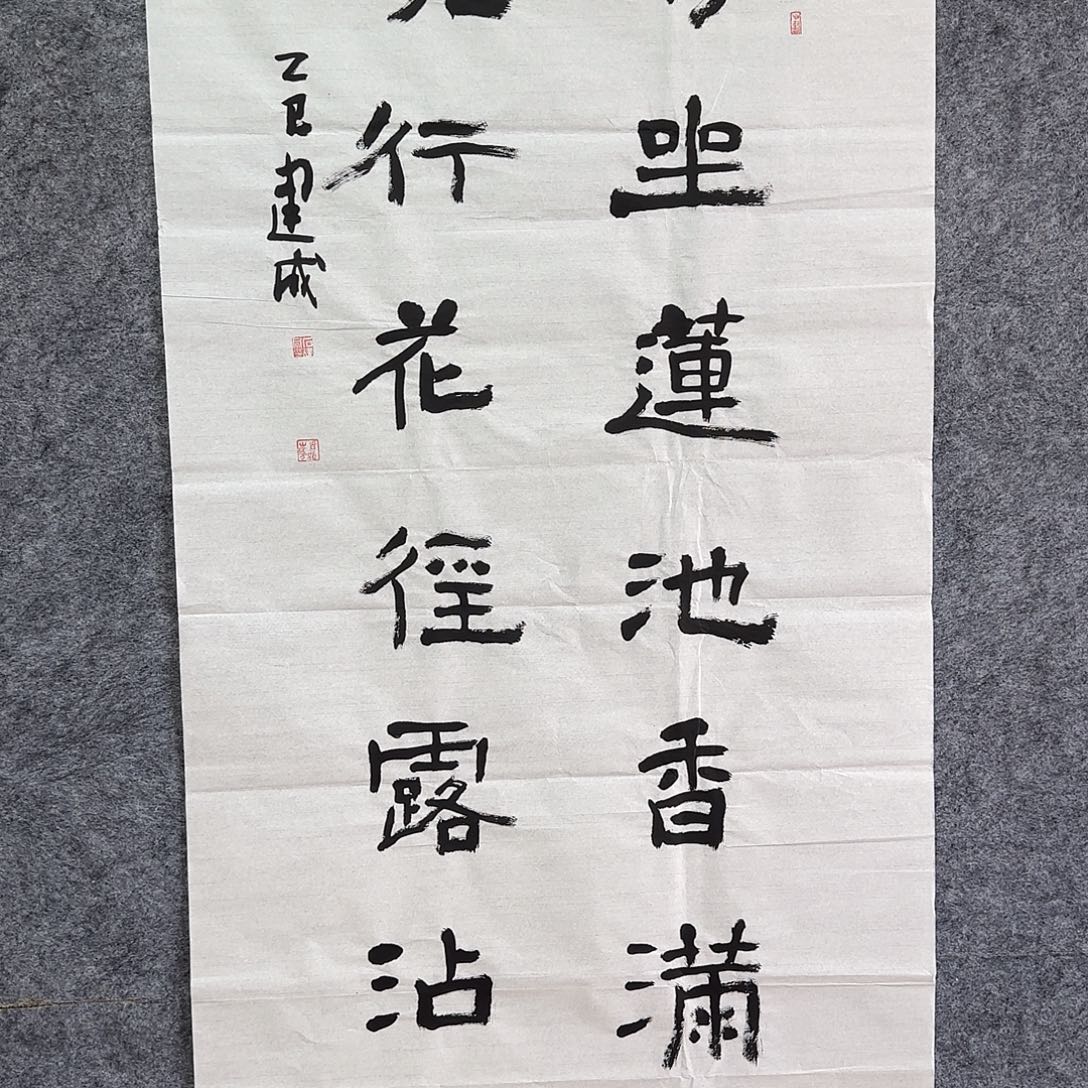 坐蓮池香滿
行花徑露沾
乙巳建成